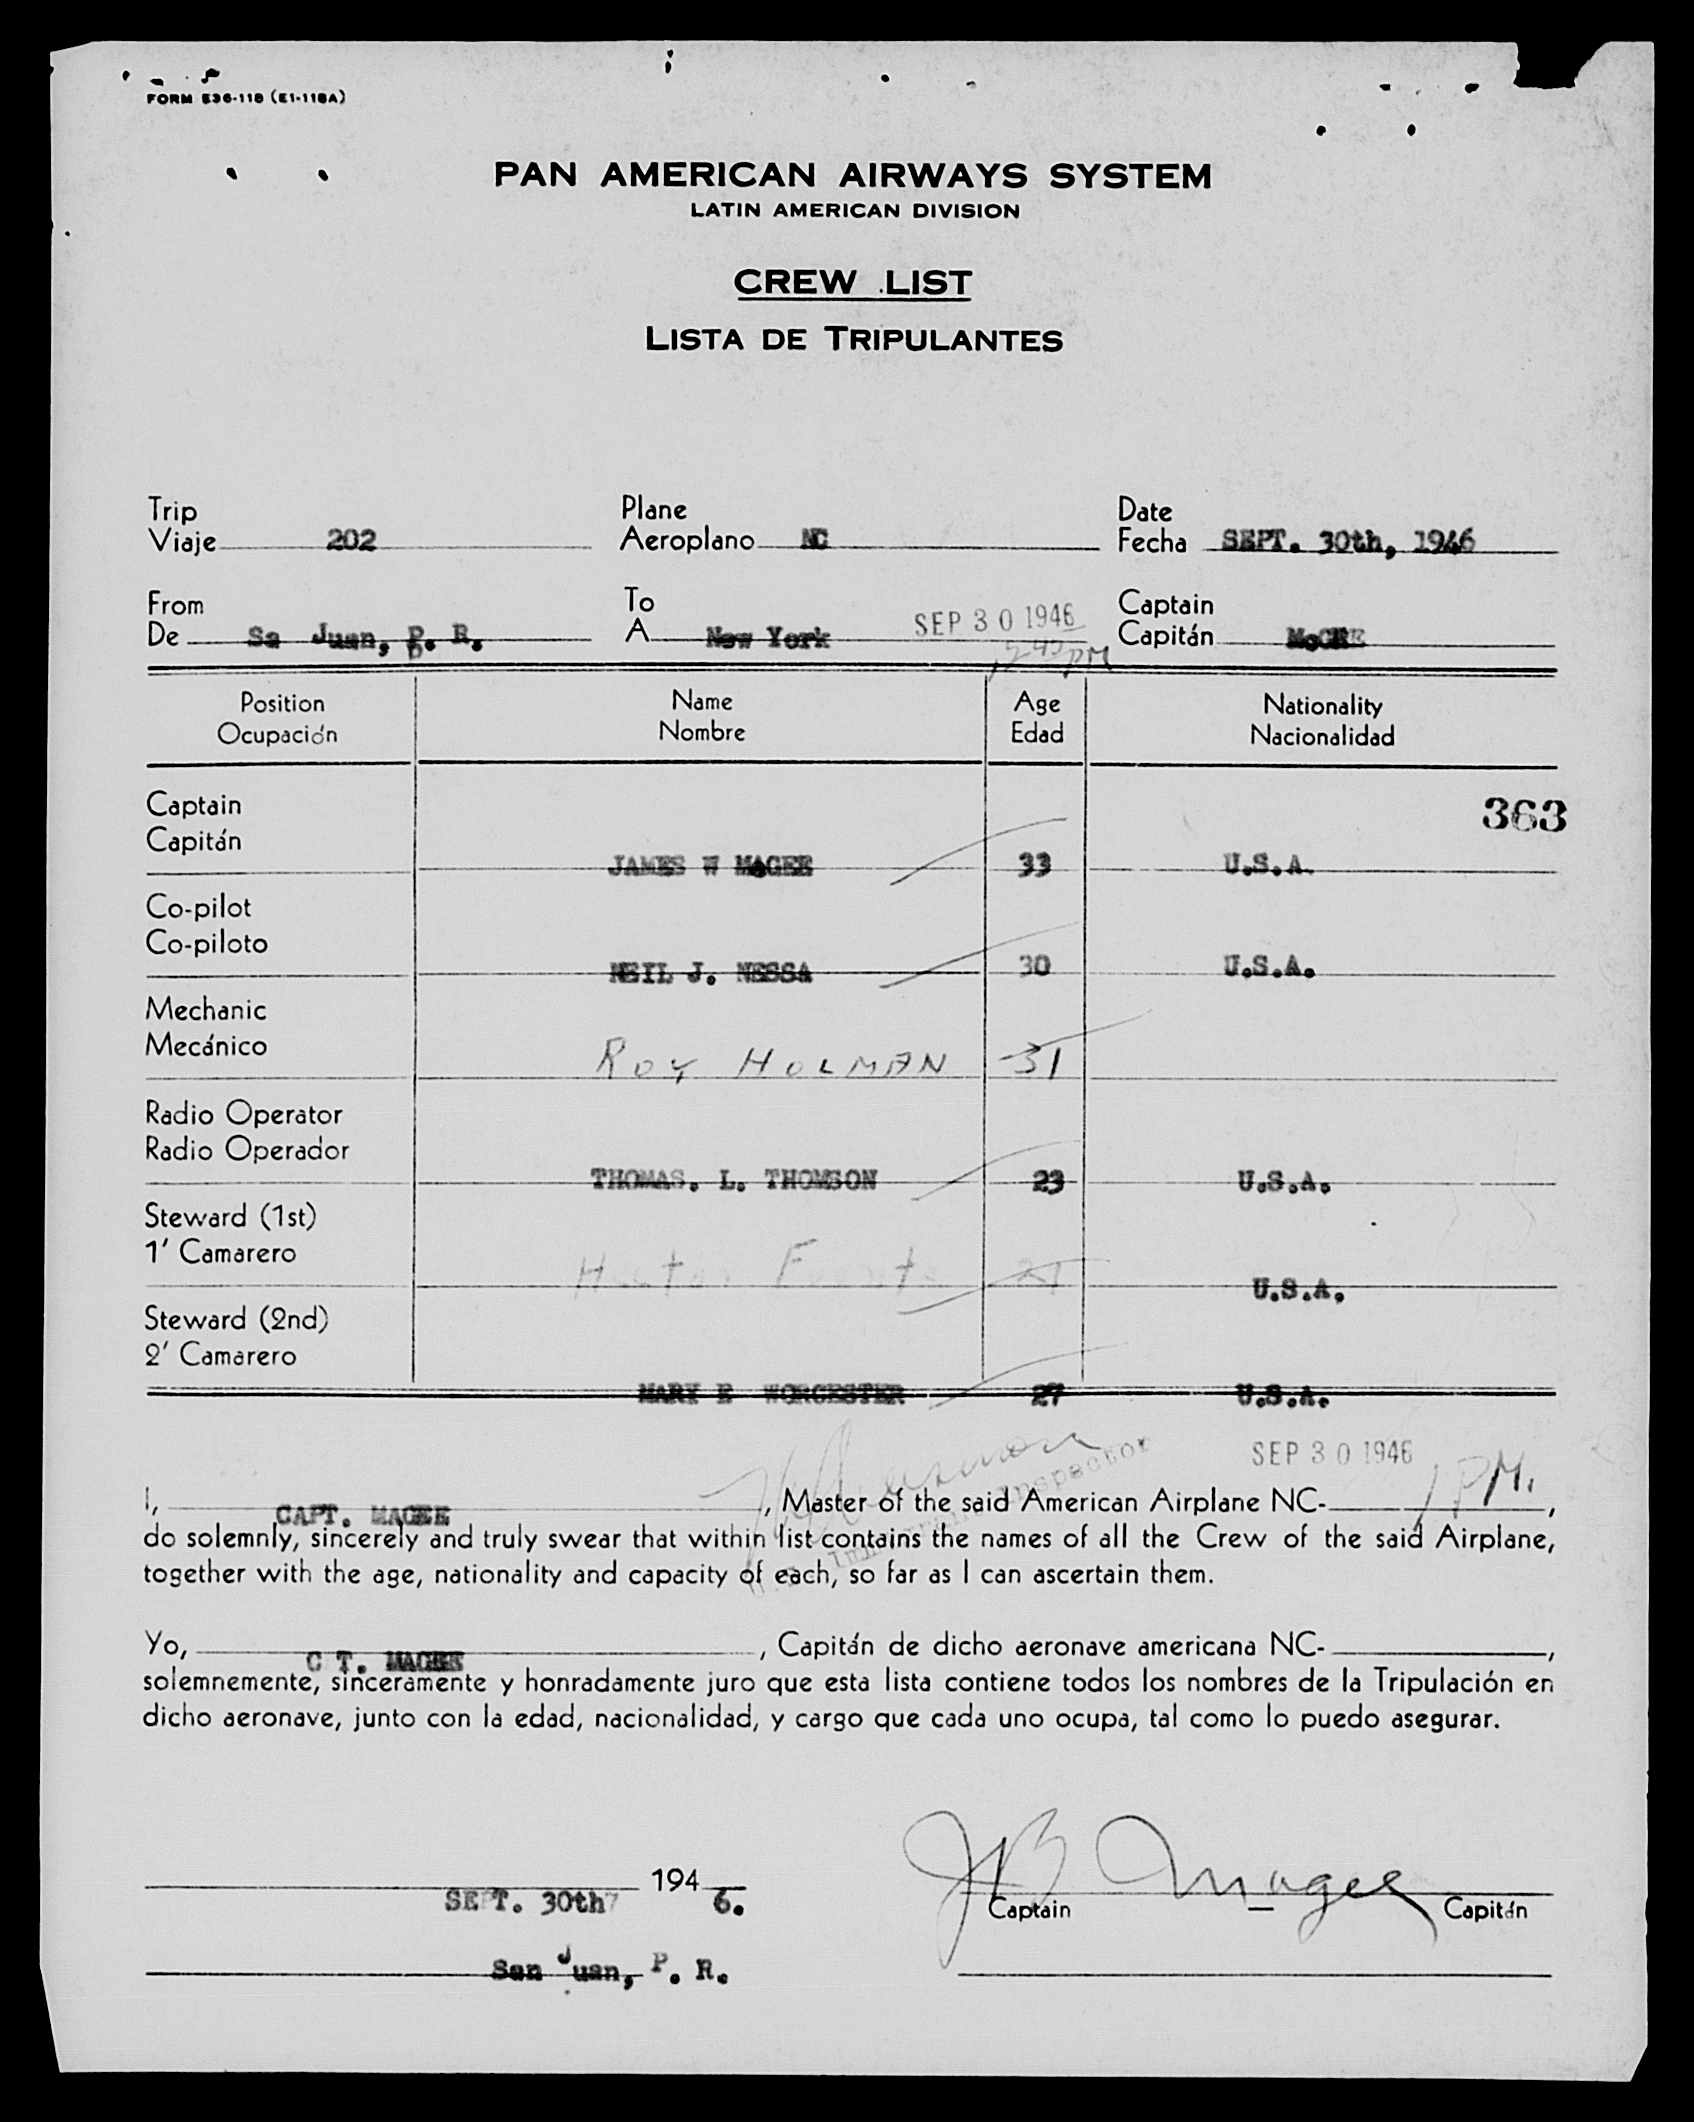 FORM E36-118 (E1-118A)
PAN AMERICAN AIRWAYS SYSTEM
LATIN AMERICAN DIVISION
CREW LIST
LISTA DE TRIPULANTES
Trip Plane Date
Viaje 202 Aeroplano NC Fecha SEPT. 30th, 1946
From To SEP 30 1946 Captain
De Sa Juan, P. R. A New York Capitán
PM
Position Name Age Nationality
Ocupación Nombre Edad Nacionalidad
Captain 363
Capitán
JAMES W MAGEE 33 U.S.A.
Co-pilot
Co-piloto
NEIL J. NESSA 30 U.S.A.
Mechanic
Mecánico
ROY HOLMAN 31
Radio Operator
Radio Operador
THOMAS. L. THOMSON 23 U.S.A.
Steward (1st)
1' Camarero
U.S.A.
Steward (2nd)
2' Camarero
MARY E WORCESTER 27 U.S.A.
SEP 30 1946
Inspector
1 PM.
I, CAPT. MAGEE, Master of the said American Airplane NC-,
do solemnly, sincerely and truly swear that within list contains the names of all the Crew of the said Airplane,
together with the age, nationality and capacity of each, so far as I can ascertain them.
Yo, C T. MAGEE, Capitán de dicho aeronave americana NC-,
solemnemente, sinceramente y honradamente juro que esta lista contiene todos los nombres de la Tripulación en
dicho aeronave, junto con la edad, nacionalidad, y cargo que cada uno ocupa, tal como lo puedo asegurar.
SEPT. 30th 194 6.
Magee
Captain Capitán
San Juan, P. R.